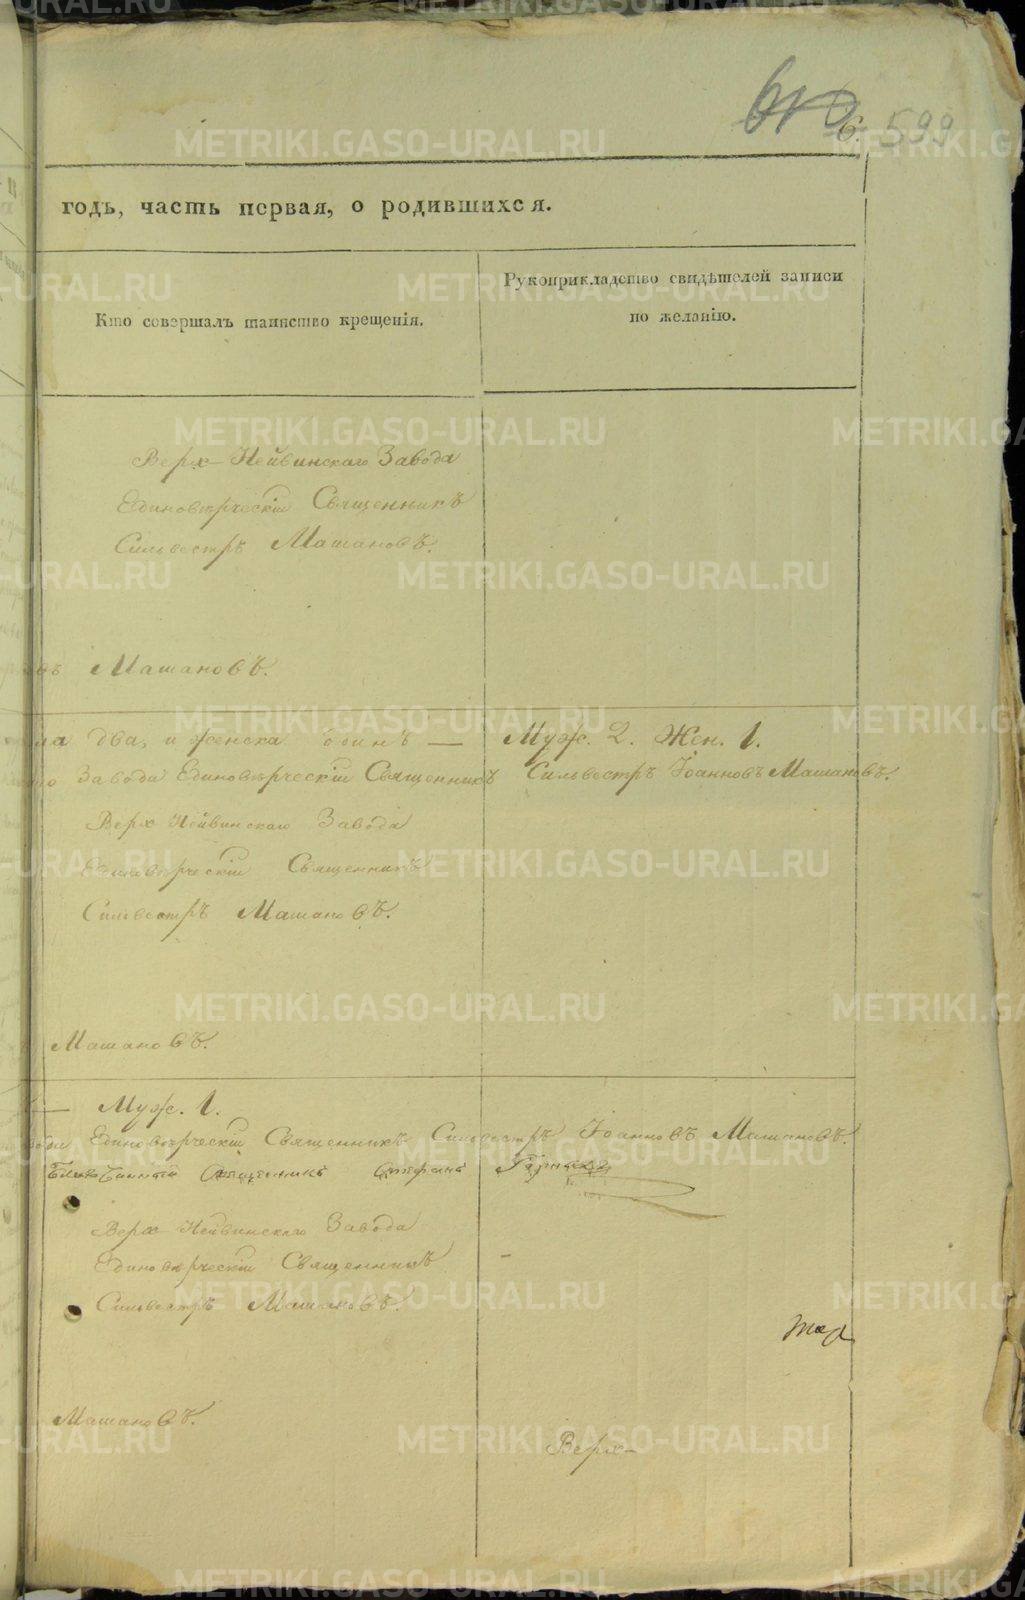 6. 599
годъ, часть первая, о родившихся.
Кто совершалъ таинство крещенія.
Рукоприкладство свидѣтелей записи
по желанію.
Верх-Нейвинскаго Завода
Единовѣрческій Священникъ
Сильвестръ Машановъ.
въ Машановъ.
ла два, и женска одинъ — Муж. 2. Жен. 1.
Завода Единовѣрческій Священникъ Сильвестръ Іоанновъ Машановъ.
Верх Нейвинскаго Завода
Единовѣрческій Священникъ
Сильвестръ Машановъ.
Машановъ.
— Муж. 1.
Единовѣрческій Священникъ Сильвестръ Іоанновъ Машановъ.
Священникъ Стефанъ
Верх-Нейвинскаго Завода
Единовѣрческій Священникъ
Сильвестръ Машановъ.
Машановъ.
Верх-
METRIKI.GASO-URAL.RU